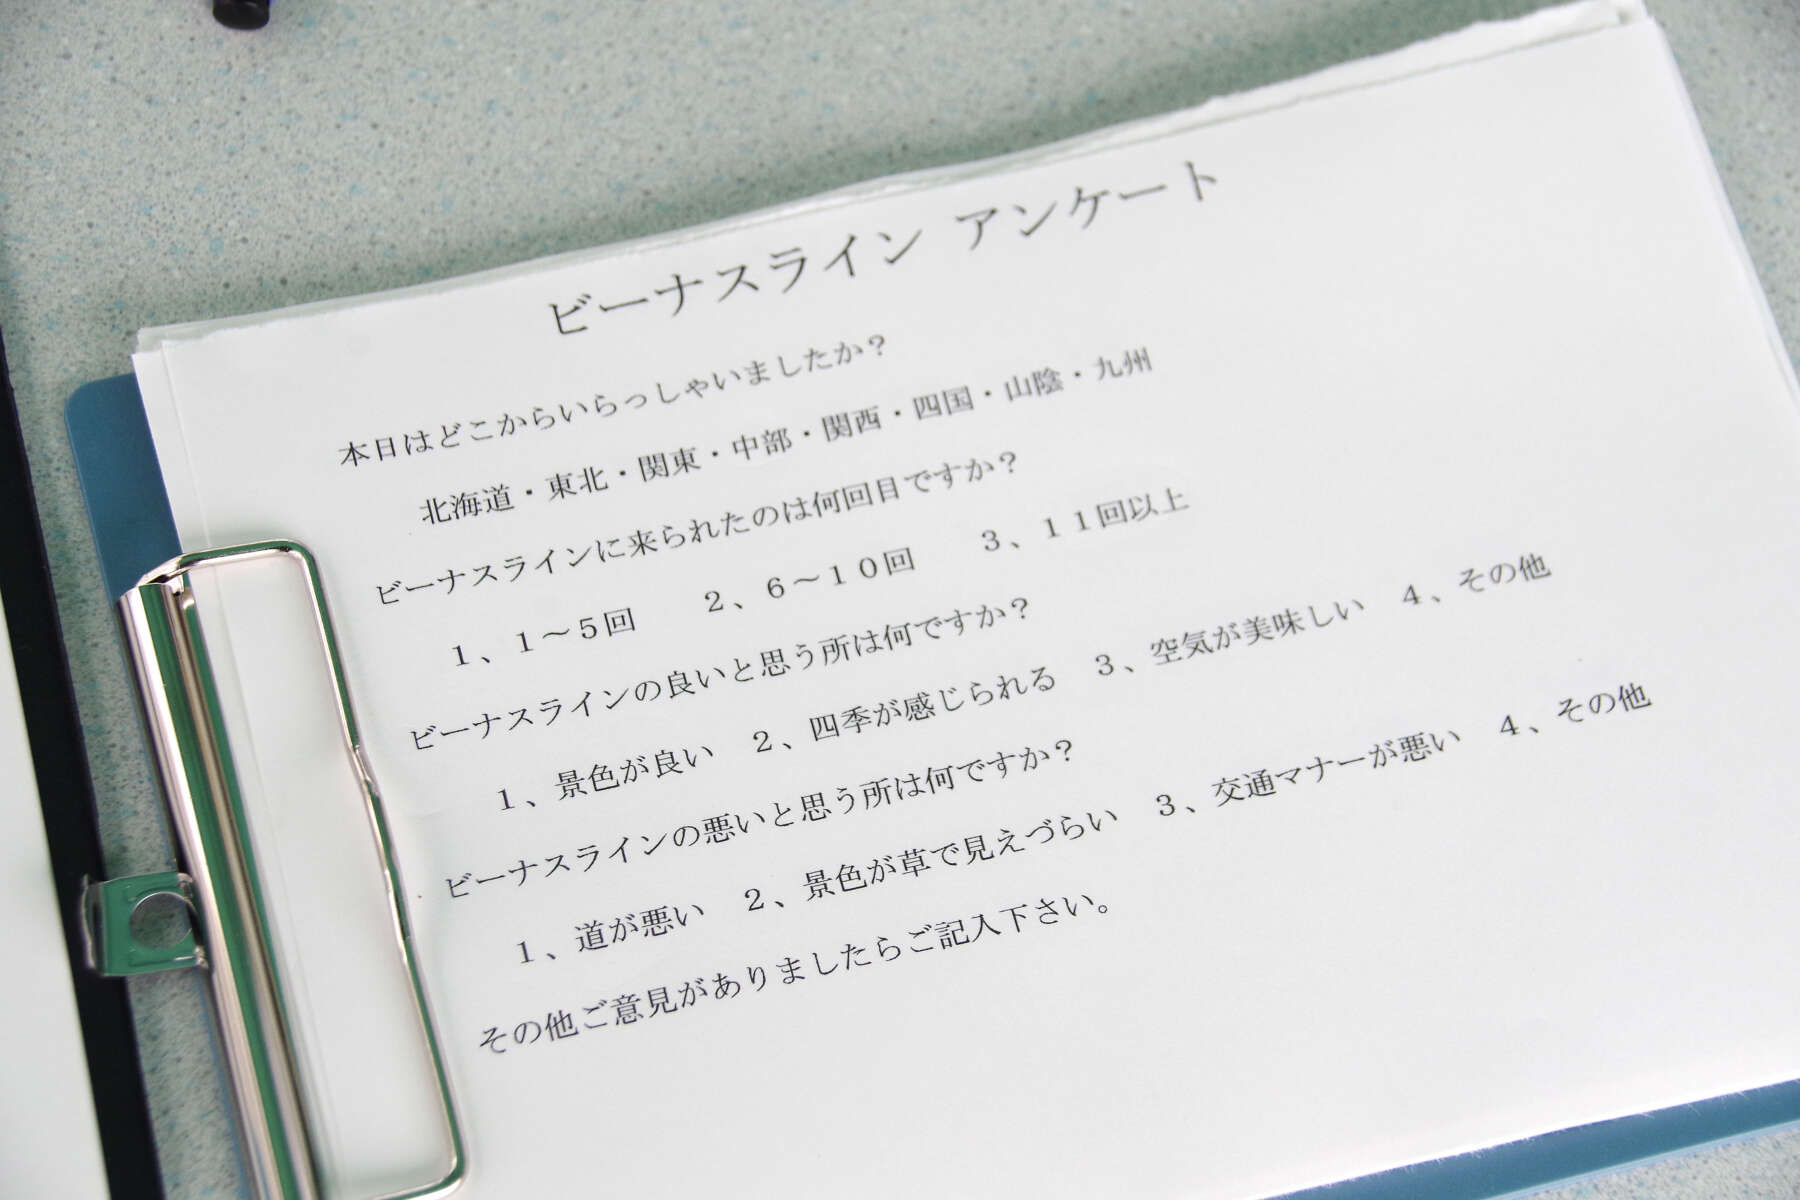 ビーナスライン アンケート
本日はどこからいらっしゃいましたか？
北海道・東北・関東・中部・関西・四国・山陰・九州
ビーナスラインに来られたのは何回目ですか？
１、１～５回　２、６～１０回　３、１１回以上
ビーナスラインの良いと思う所は何ですか？
１、景色が良い　２、四季が感じられる　３、空気が美味しい　４、その他
ビーナスラインの悪いと思う所は何ですか？
１、道が悪い　２、景色が草で見えづらい　３、交通マナーが悪い　４、その他
その他ご意見がありましたらご記入下さい。